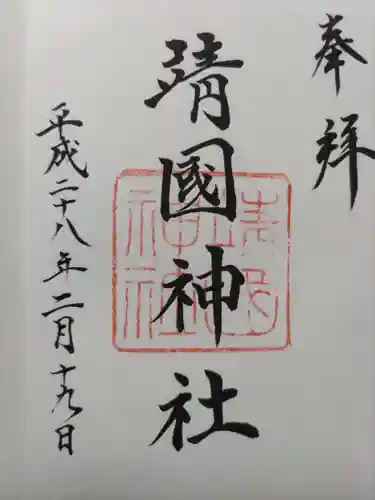 奉拝
靖國神社
平成二十八年二月十九日
靖國
神社